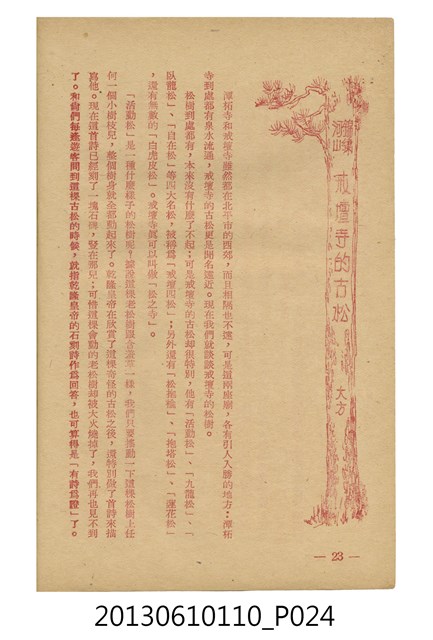 戒壇寺的古松
大方
潭柘寺和戒壇寺雖然都在北平市的西郊，而且相隔也不遠，可是這兩座廟，各有引人入勝的地方：潭柘
寺到處都有泉水流通，戒壇寺的古松更是聞名遠近。現在我們就談談戒壇寺的松樹。
松樹到處都有，本來沒有什麼了不起；可是戒壇寺的古松却很特別，他有「活動松」、「九龍松」、
臥龍松」、「自在松」等四大名松，被稱爲「戒壇四松」；另外還有「松抱槐」、「抱塔松」、「蓮花松」
，還有無數的「白虎皮松」。戒壇寺眞可以叫做「松之寺」。
「活動松」是一種什麼樣子的松樹呢？據說這棵老松樹跟含羞草一樣，我們只要搖動一下這棵松樹上任
何一個小樹枝兒，整個樹身就全都動起來了。乾隆皇帝在欣賞了這棵奇怪的古松之後，還特別做了首詩來描
寫他。現在這首詩已經刻了一塊石碑，豎在那兒；可惜這棵會動的老松樹却被大火燒掉了，我們再也見不到
了。和尙們每逢遊客問到這棵古松的時候，就指乾隆皇帝的石刻詩作爲回答，也可算得是「有詩爲證」了。
— 23 —
20130610110_P024